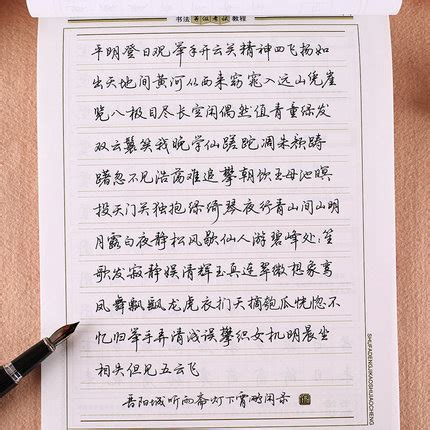 书法等级考试教程
平明登日观举手开云关精神四飞扬如
出天地间黄河从西来窈窕入远山凭崖
览八极目尽长空闲偶然值青童绿发
双云鬟笑我晚学仙蹉跎凋朱颜踌
躇忽不见浩荡难追攀朝饮王母池暝
投天门关独抱绿绮琴夜行青山间山明
月露白夜静松风歇仙人游碧峰处:笙
歌发寂静娱清辉玉真连翠微想象鸾
凤舞飘飖龙虎衣扪天摘匏瓜恍惚不
忆归举手弄清浅误攀织女机明晨坐
相失但见五云飞
阳城听雨斋灯下闲录
SHUFADENGJIKAOSHIJIAOCHENG